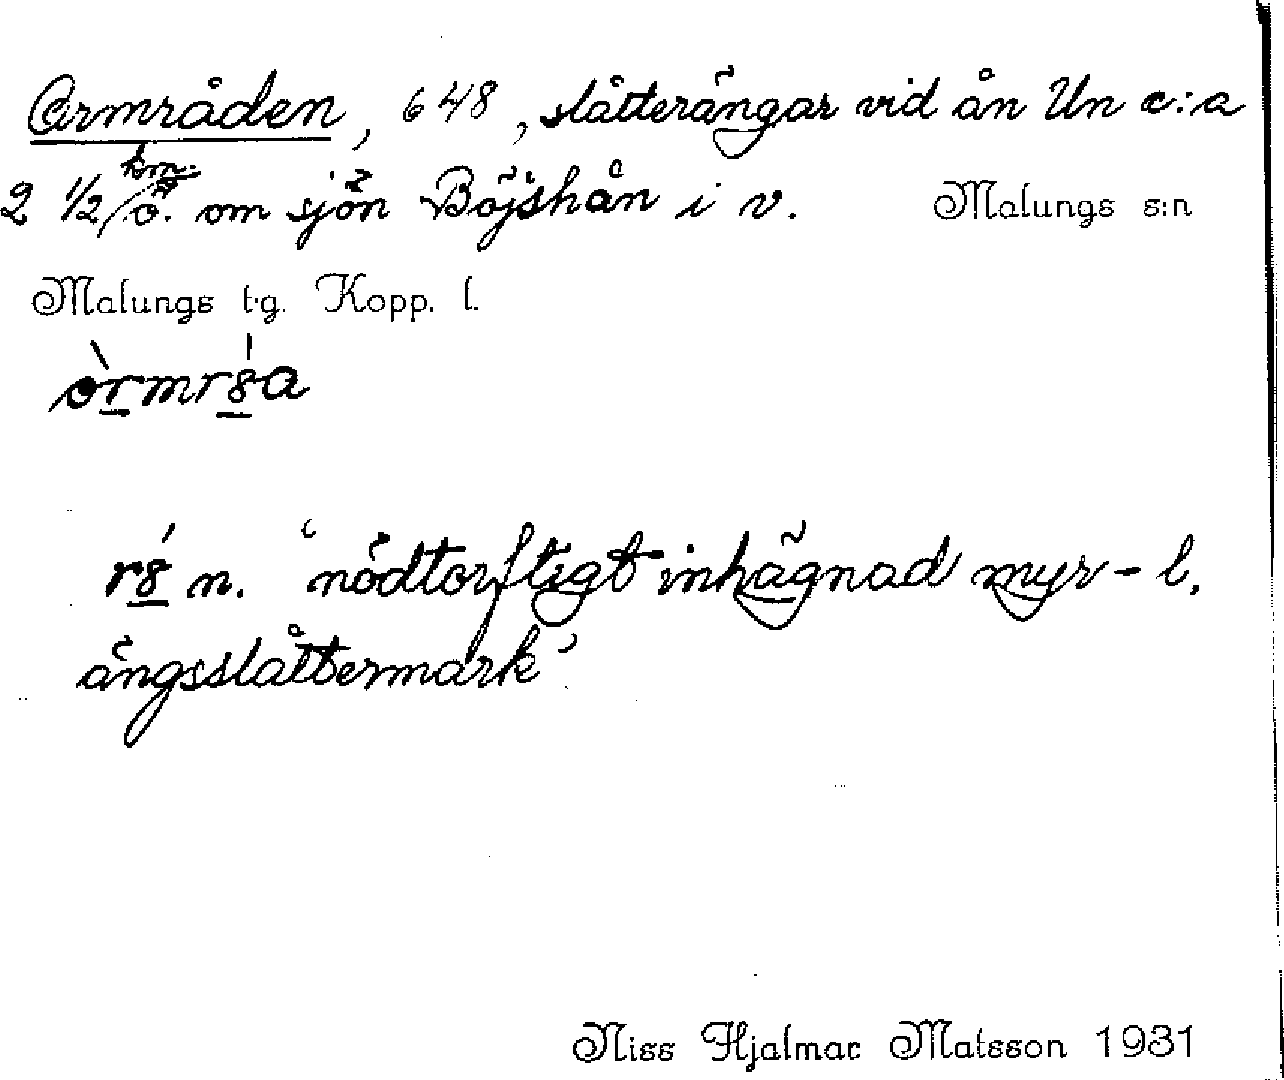 Ormråden, 648, slåtterängar vid ån Un c:a
2 1/2 km. ö. om sjön Böjshån i v. Malungs s:n
Malungs t.g. Kopp. l.
òrmr8́a
r8́ n. ‘nödtorftigt inhägnad myr- l.
ängsslåttermark’
Niss Hjalmar Matsson 1931